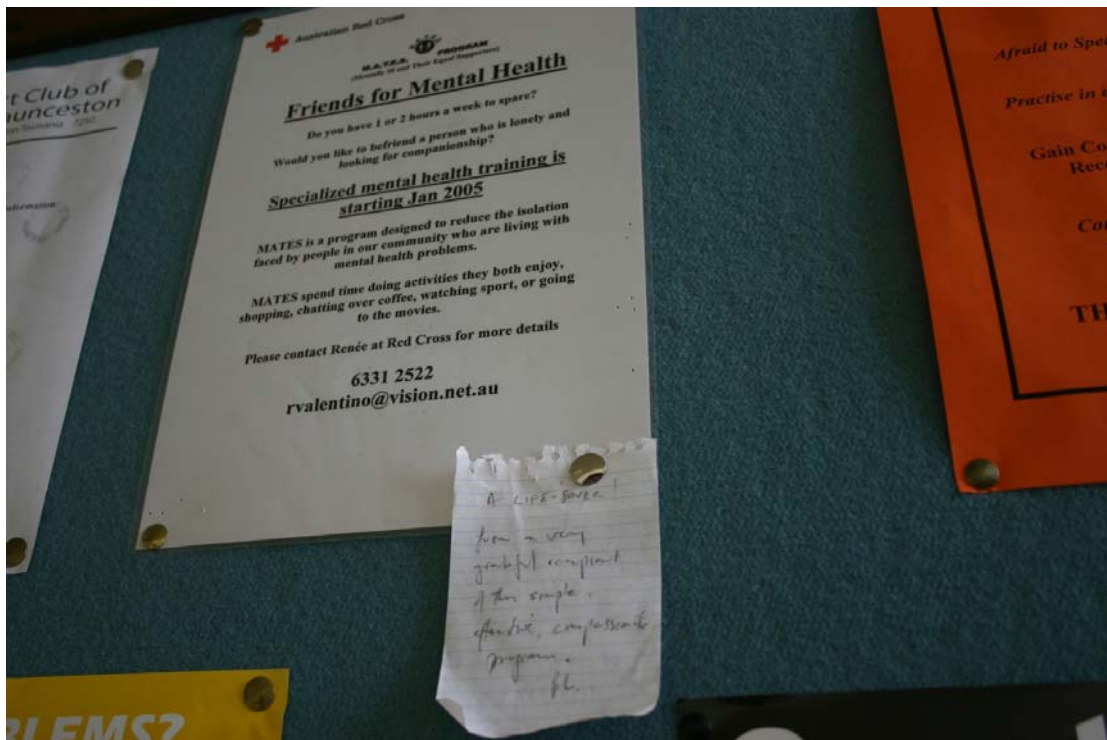 rt Club of
aunceston
Tasmania 7250
nformation
Australian Red Cross
M.A.T.E.S. PROGRAM
and Their Equal Supporters)
Friends for Mental Health
Do you have 1 or 2 hours a week to spare?
Would you like to befriend a person who is lonely and
looking for companionship?
Specialized mental health training is
starting Jan 2005
MATES is a program designed to reduce the isolation
faced by people in our community who are living with
mental health problems.
MATES spend time doing activities they both enjoy,
shopping, chatting over coffee, watching sport, or going
to the movies.
Please contact Renée at Red Cross for more details
6331 2522
rvalentino@vision.net.au
A LIFE-SAVER!
from a very
grateful recipient
of this simple,
effective, compassionate
program.
Afraid to Spe
Practise in
Gain Co
Rec
Co
TH
BLEMS?